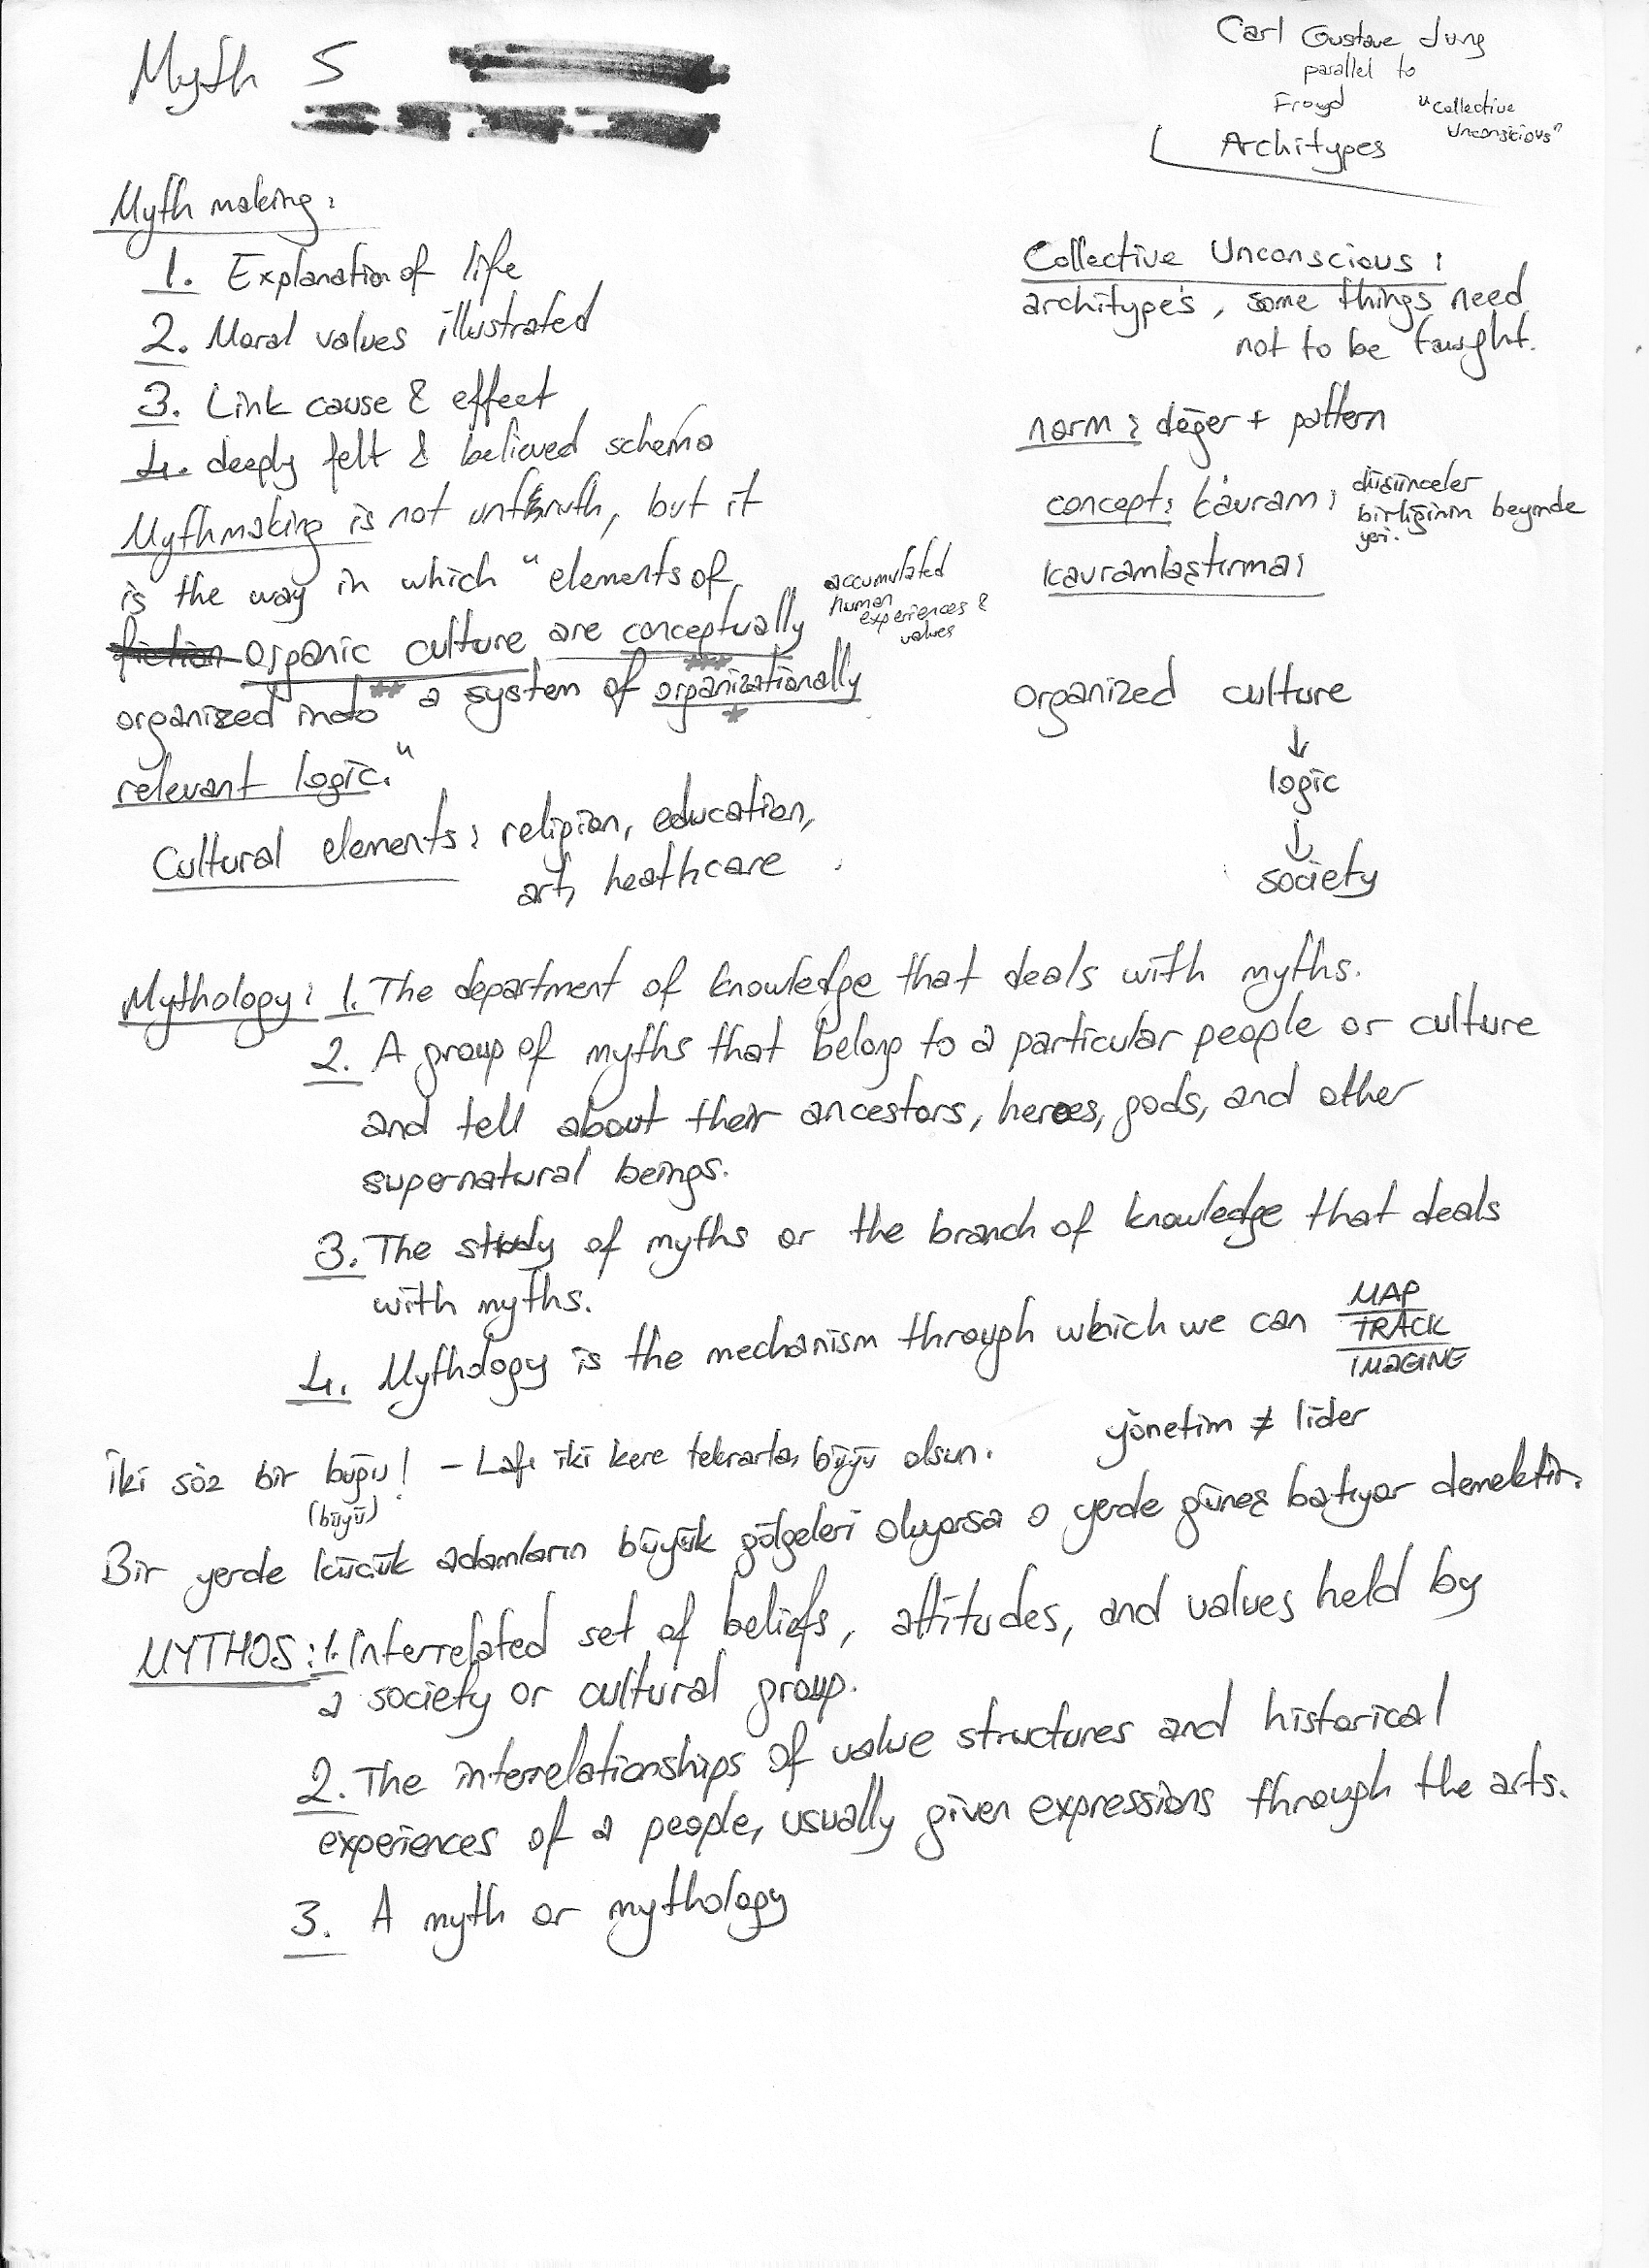 Myth 5
Carl Gustave Jung
parallel to
Froyd "Collective
Unconscious"
Architypes
Myth making:
1. Explanation of life
2. Moral values illustrated
3. Link cause & effect
4. deeply felt & believed schema
Mythmaking is not untruth, but it
is the way in which "elements of
fiction organic culture are conceptually
organized into ** a system of organizationally
***
*
relevant logic."
accumulated
human
experiences &
values
Cultural elements: religion, education,
art, heathcare
Collective Unconscious:
architype's, some things need
not to be taught.
norm: değer + pattern
concept: kavram: düşünceler
birliğinin beyinde
yeri.
kavramlaştırma:
organized culture
↓
logic
↓
society
Mythology: 1. The department of knowledge that deals with myths.
2. A group of myths that belong to a particular people or culture
and tell about their ancestors, heroes, gods, and other
supernatural beings.
3. The study of myths or the branch of knowledge that deals
with myths.
4. Mythology is the mechanism through which we can MAP
TRACK
IMAGINE
yönetim ≠ lider
İki söz bir büğü! - Lafı iki kere tekrarla, büyü olsun.
(büyü)
Bir yerde küçük adamların büyük gölgeleri oluyorsa o yerde güneş batıyor demektir.
MYTHOS: 1. Interrelated set of beliefs, attitudes, and values held by
a society or cultural group.
2. The interrelationships of value structures and historical
experiences of a people, usually given expressions through the arts.
3. A myth or mythology